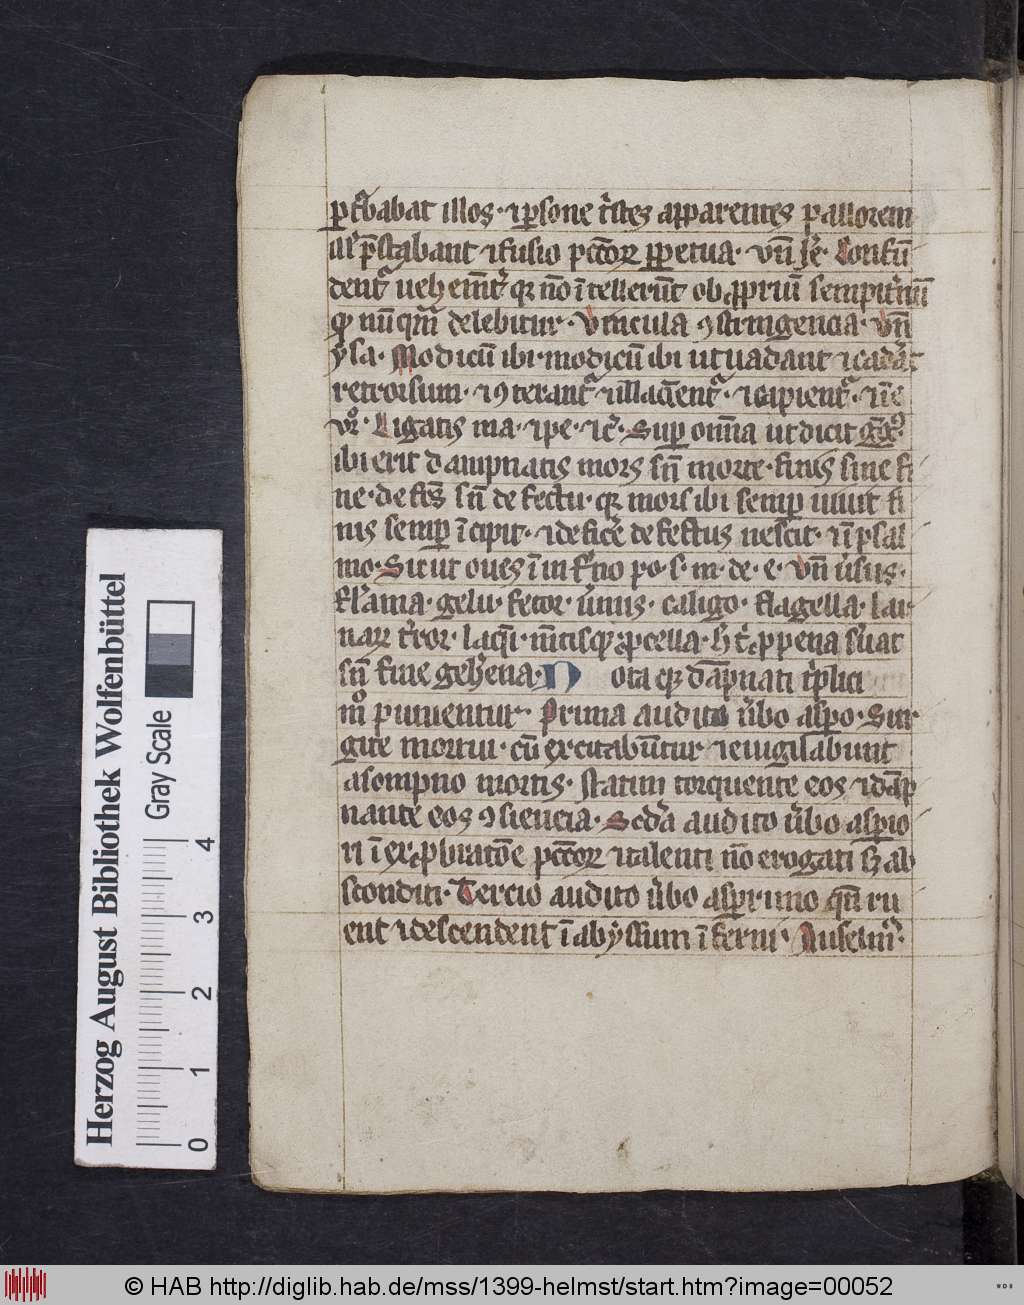 ꝑt᷑babat illos · ⁊ ꝑsone tͥstes apparentes pallorem
ill᷑ p̄stabant ⁊ fusio pct̄oꝝ ꝑpetua · vn̄ Je᷑ · Confun̄
dent᷑ uehem̄t᷑ qꝛ nō ītellerūt obꝓpriū sempit᷑nū
qd̓ nūq̄m delebitur · vincula ꝯstringencia · vn̄
ysa · Modicū ibi · modicū ibi ut uadant ⁊ cadāt
retrorsum · ⁊ ꝯterant᷑ ⁊ illaq̄ent᷑ · ⁊ capient᷑ · ⁊ īe
vͦ · Ligatis ma · ⁊ pe · ⁊c᷑ · Suꝑ omīa ut dicit g̅g̅ꝰ ·
ibi erit dampnatis mors sn̄ morte · finis sine fi
ne · defcs̄ sn̄ defectu · qꝛ mors ibi semꝑ uiuit fi
nis semꝑ īcipit · ⁊ defic̄e defectus nescit · ⁊ ī psal
mo · Sicut oues ī inf᷑no po · s · m · de · e · vn̄ u᷑sus ·
fl᷑ama · gelu · fetor · u᷑mis · caligo · flagella · lar
uaꝝ t᷑ror · laq̄i · mctisqꝫ ꝓcella · h̄ t᷑ pena sn̄at
sn̄ fine geh᷑ena · Nota qꝛ dāpnati tͥplici
mͦ punientur · Prima audito u᷑bo asꝑo · Sur
gite mortui · cū excitabūtur ⁊ euigilabunt
a sompno mortis · statim torquente eos ⁊ dāp
nante eos ꝯsiencia · Scd̄a audito u᷑bo asꝑio
ri ī exꝓbratōe pct̄oꝝ ⁊ talenti nō erogati sꝫ ab
sconditi · Tercio audito u᷑bo asꝑrimo qn̄ ru
ent ⁊ descendent ī abyssum īferni · Anselmꝰ ·
Herzog August Bibliothek Wolfenbüttel
Gray Scale
0 1 2 3 4
© HAB http://diglib.hab.de/mss/1399-helmst/start.htm?image=00052